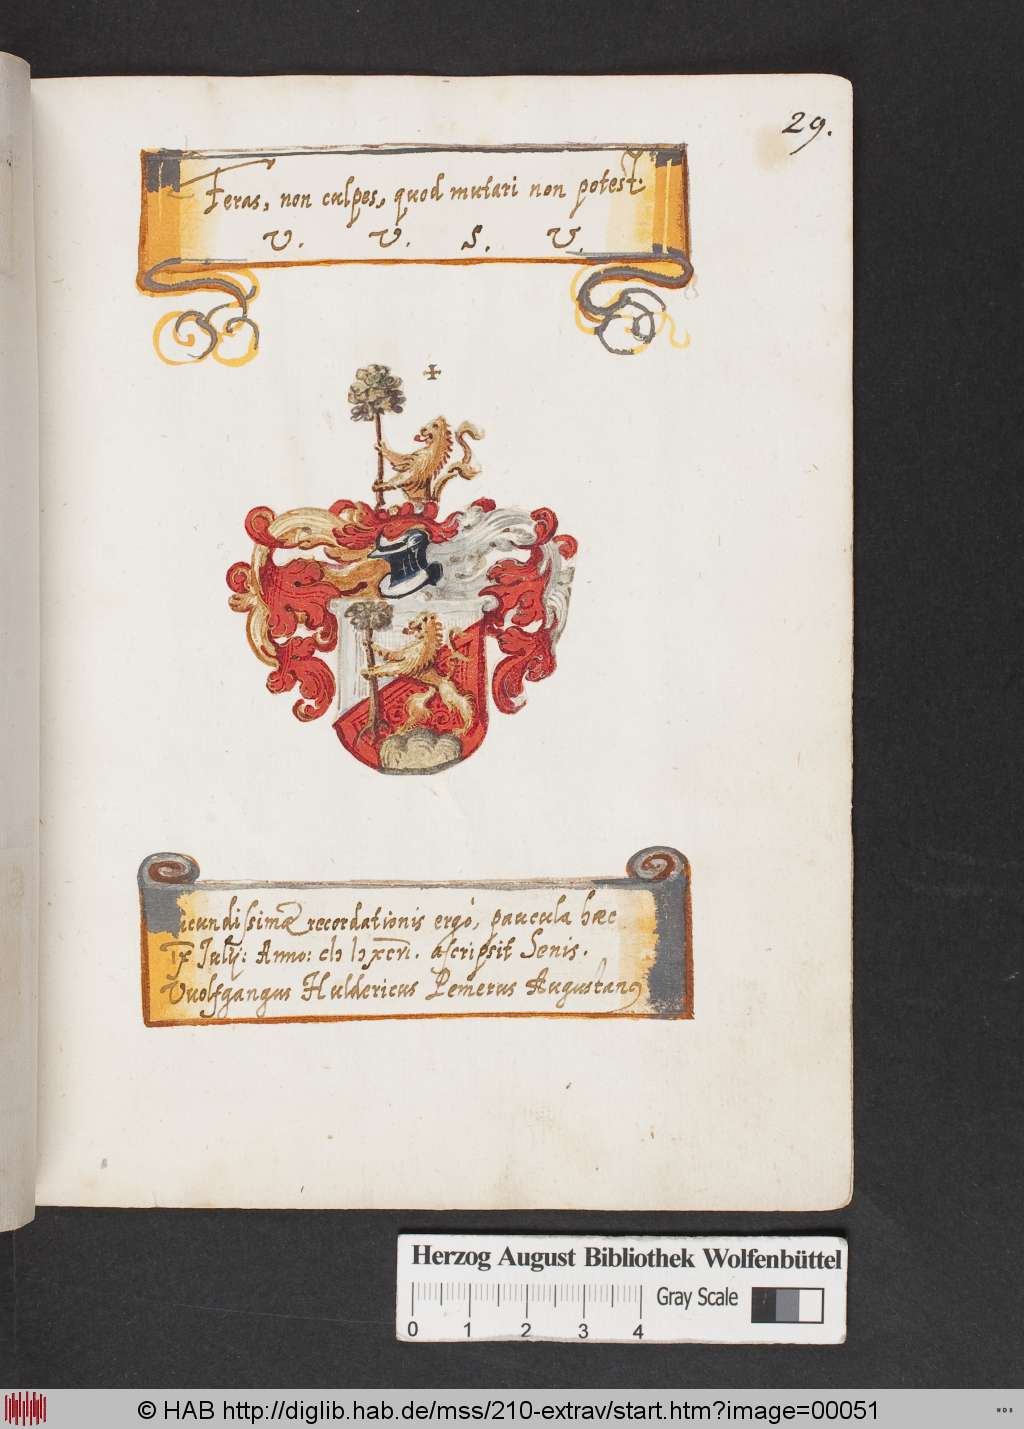 29.
Feras, non culpes, quod mutari non potest.
V. V. S. V.
iucundissimæ recordationis ergò, paucula hæc
IX Julij: Anno: cIɔ Iɔ xcvi. ascripsit Senis.
Vuolfgangus Huldericus Remerus Augustanus
Herzog August Bibliothek Wolfenbüttel
Gray Scale
0 1 2 3 4
© HAB http://diglib.hab.de/mss/210-extrav/start.htm?image=00051
HAB